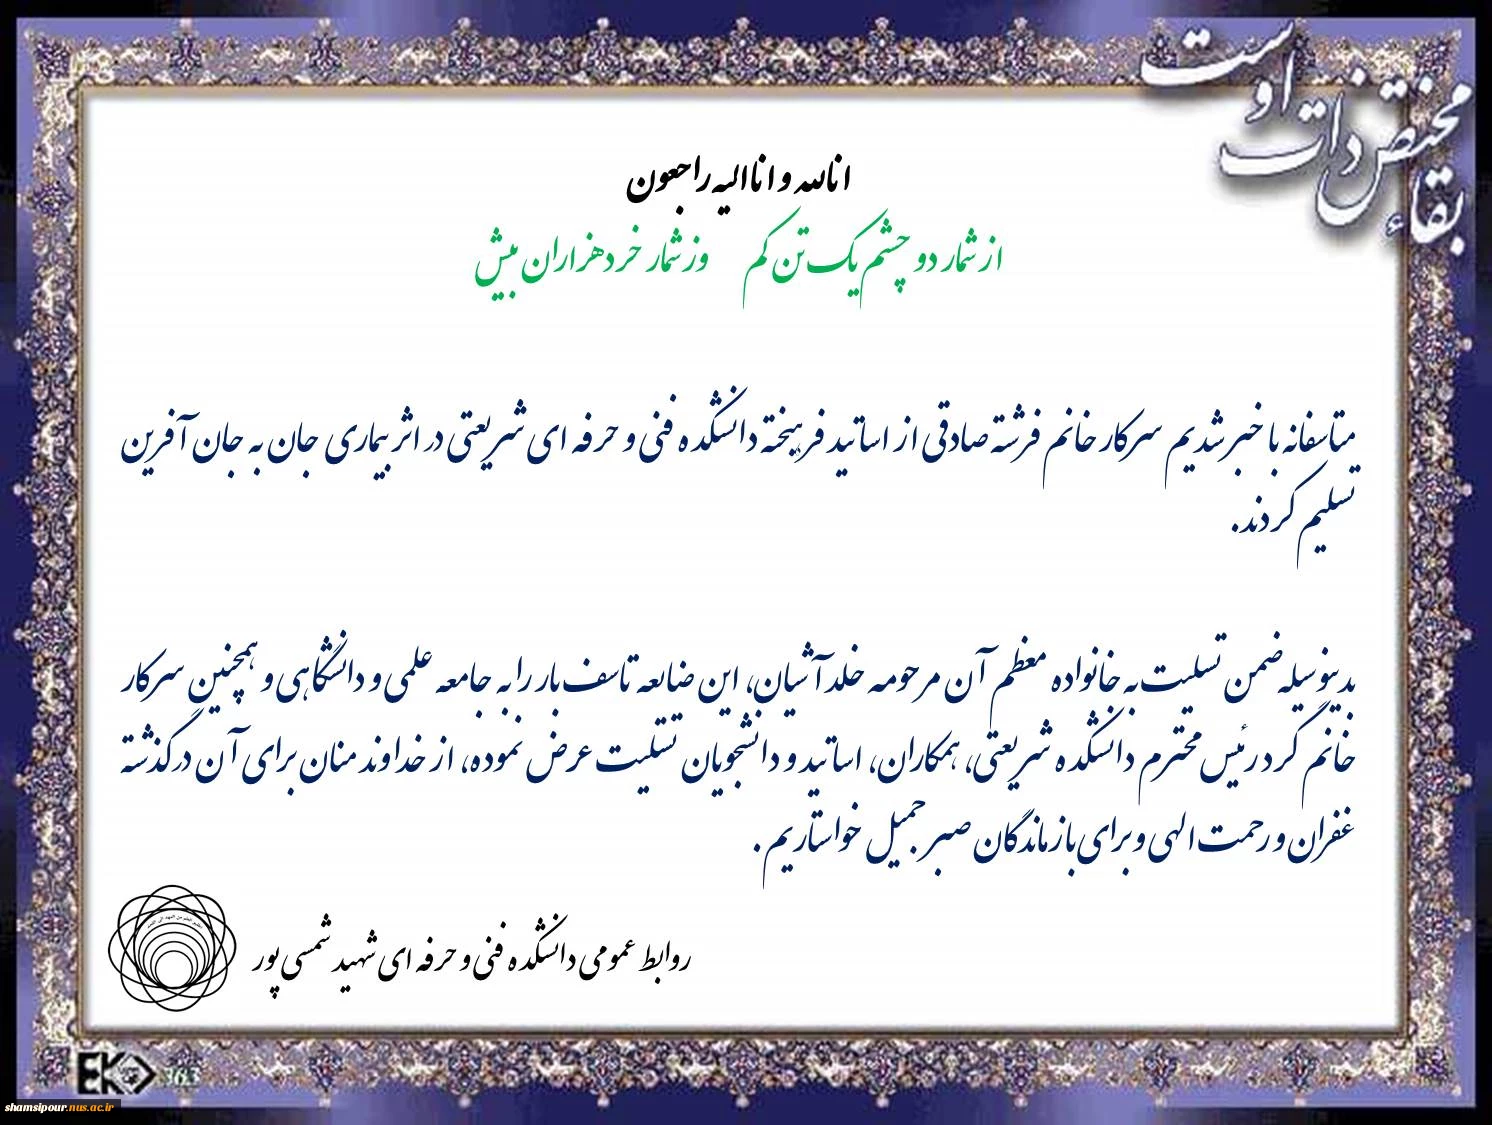 بقاء مختص ذات اوست
انالله و اناالیه راجعون
از شمار دو چشم یک تن کم وز شمار خرد هزاران بیش
متاسفانه با خبر شدیم سرکار خانم فرشته صادقی از اساتید فرهیخته دانشکده فنی و حرفه ای شریعتی در اثر بیماری جان به جان آفرین
تسلیم کردند.
بدینوسیله ضمن تسلیت به خانواده معظم آن مرحومه خلد آشیان، این ضایعه تاسف بار را به جامعه علمی و دانشگاهی و همچنین سرکار
خانم گرد رئیس محترم دانشکده شریعتی، همکاران، اساتید و دانشجویان تسلیت عرض نموده، از خداوند منان برای آن درگذشته
غفران و رحمت الهی و برای بازماندگان صبر جمیل خواستاریم.
روابط عمومی دانشکده فنی و حرفه ای شهید شمسی پور
EK 363
shamsipour.nus.ac.ir